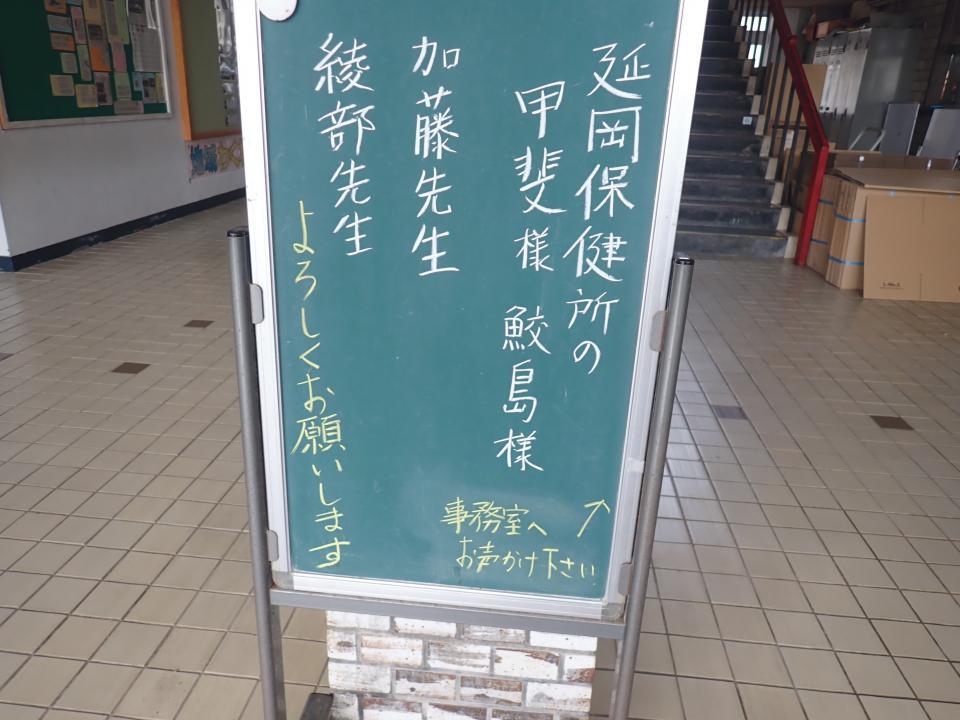 延岡保健所の
甲斐様 鮫島様
加藤先生
綾部先生
よろしくお願いします
↗
事務室へ
お声かけ下さい